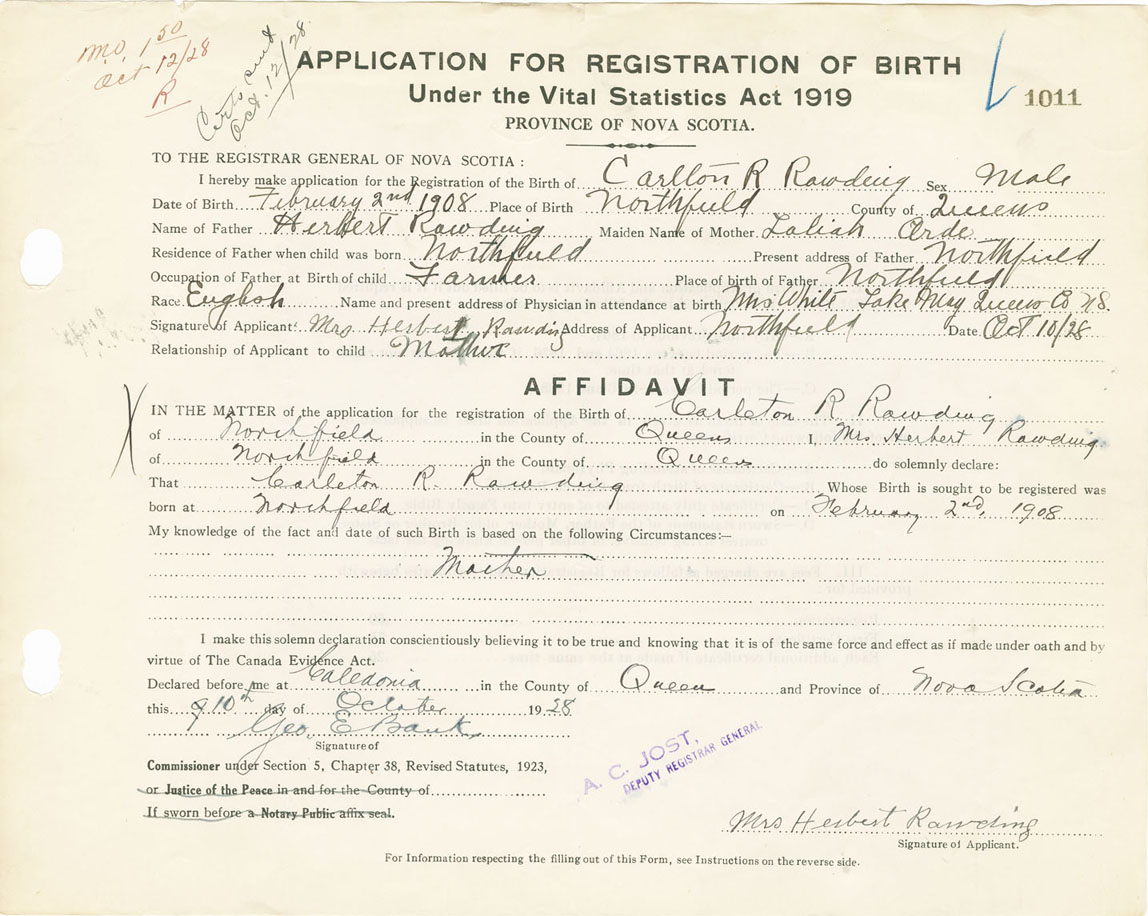 mo. 1 50
Oct 12/28
R
Certs sent
Oct. 12/28
APPLICATION FOR REGISTRATION OF BIRTH
Under the Vital Statistics Act 1919
1011
PROVINCE OF NOVA SCOTIA.
TO THE REGISTRAR GENERAL OF NOVA SCOTIA :
I hereby make application for the Registration of the Birth of Carllton R Rawding Sex Male
Date of Birth February 2nd 1908 Place of Birth Northfield County of Queens
Name of Father Herbert Rawding Maiden Name of Mother Laliah Orde
Residence of Father when child was born Northfield Present address of Father Northfield
Occupation of Father at Birth of child Farmer Place of birth of Father Northfield
Race English Name and present address of Physician in attendance at birth Mrs White Lake May Queens Co N.S.
Signature of Applicant: Mrs Herbert Rawding Address of Applicant Northfield Date Oct 10/28
Relationship of Applicant to child Mother
AFFIDAVIT
IN THE MATTER of the application for the registration of the Birth of Carleton R Rawding
of Northfield in the County of Queens I, Mrs Herbert Rawding
of Northfield in the County of Queens do solemnly declare:
That Carleton R. Rawding Whose Birth is sought to be registered was
born at Northfield on February 2nd, 1908
My knowledge of the fact and date of such Birth is based on the following Circumstances:—
Mother
I make this solemn declaration conscientiously believing it to be true and knowing that it is of the same force and effect as if made under oath and by
virtue of The Canada Evidence Act.
Declared before me at Caledonia in the County of Queens and Province of Nova Scotia
this 10th day of October 1928
Geo. E Bank
Signature of
Commissioner under Section 5, Chapter 38, Revised Statutes, 1923,
or Justice of the Peace in and for the County of
If sworn before a Notary Public affix seal.
A. C. JOST,
DEPUTY REGISTRAR GENERAL
Mrs Herbert Rawding
Signature of Applicant.
For Information respecting the filling out of this Form, see Instructions on the reverse side.